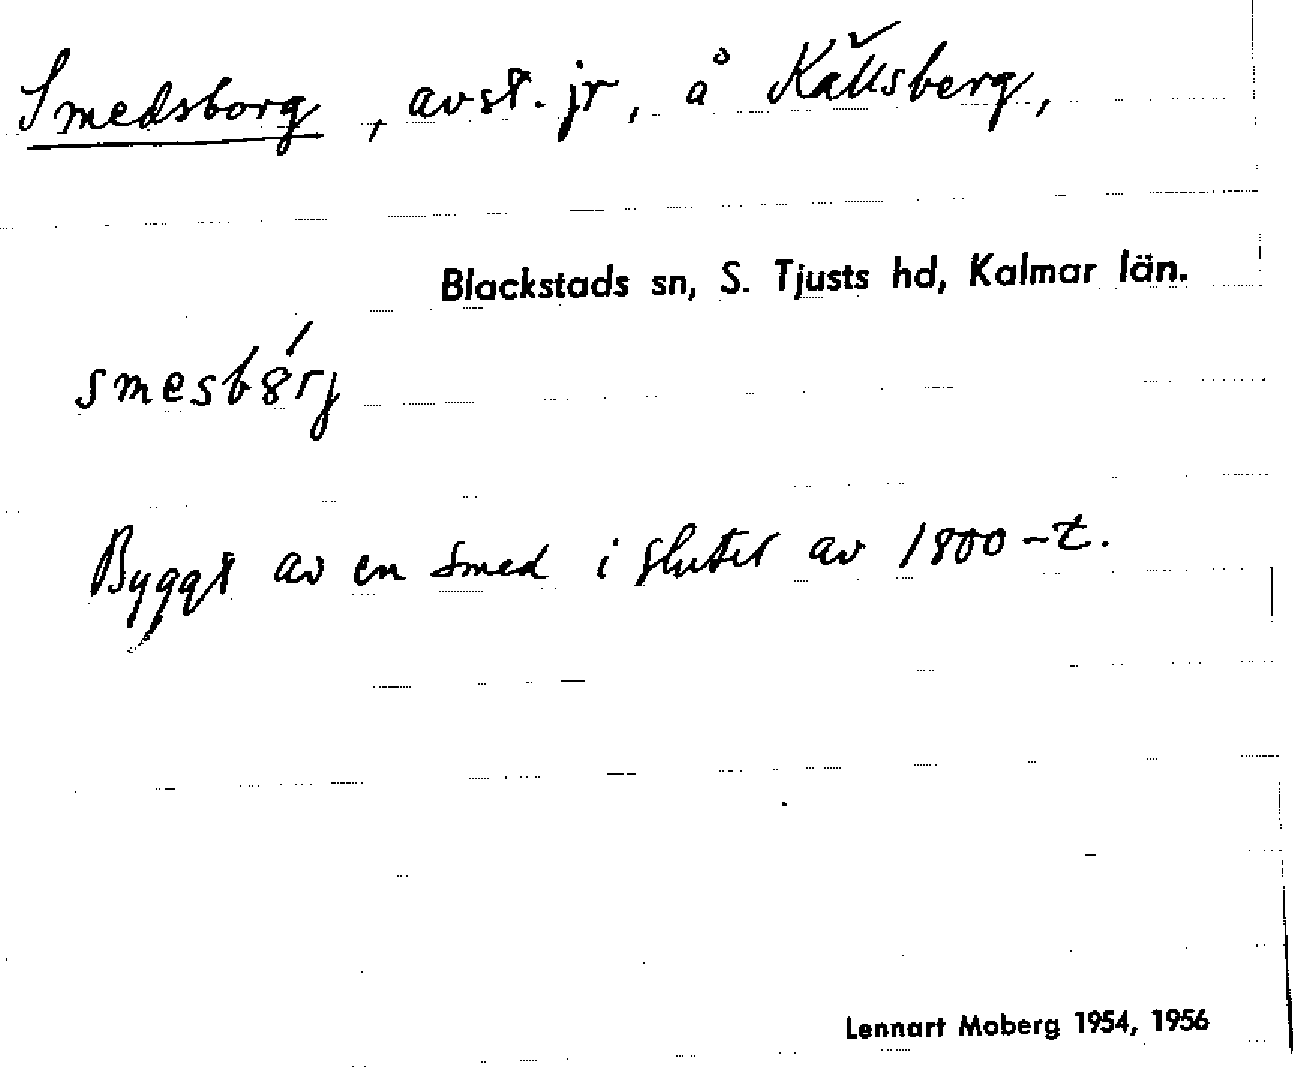 Smedsborg, avst. jr, å Källsberg,
Blackstads sn, S. Tjusts hd, Kalmar län.
smesbórj
Byggt av en smed i slutet av 1800-t.
Lennart Moberg 1954, 1956